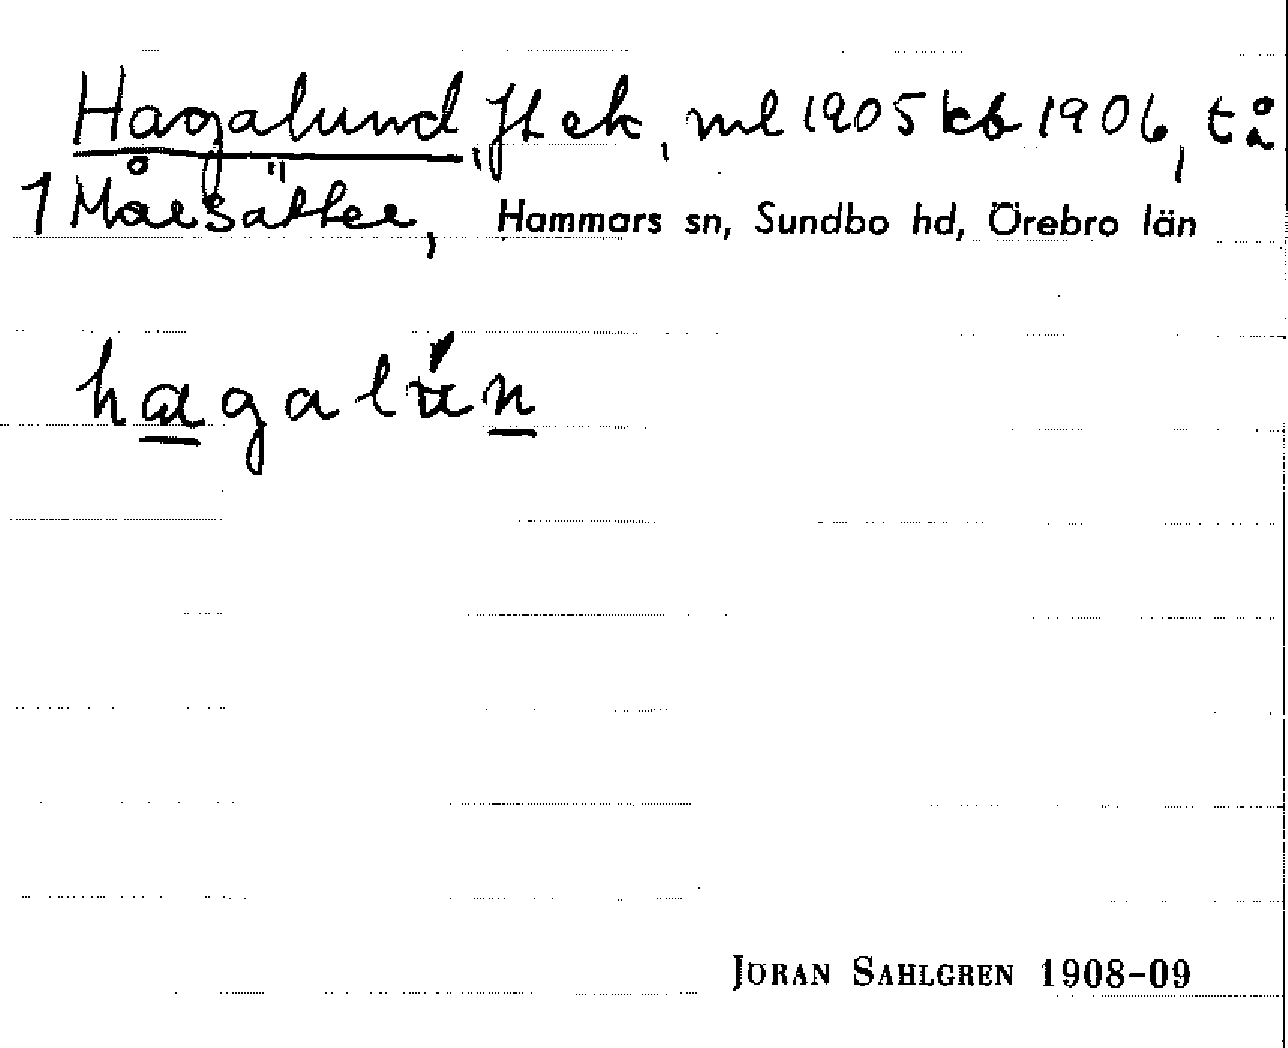 Hagalund, Jl ek, ml 1905 kb 1906, tå
1 Mårsätter, Hammars sn, Sundbo hd, Örebro län
hagalún
JÖRAN SAHLGREN 1908-09